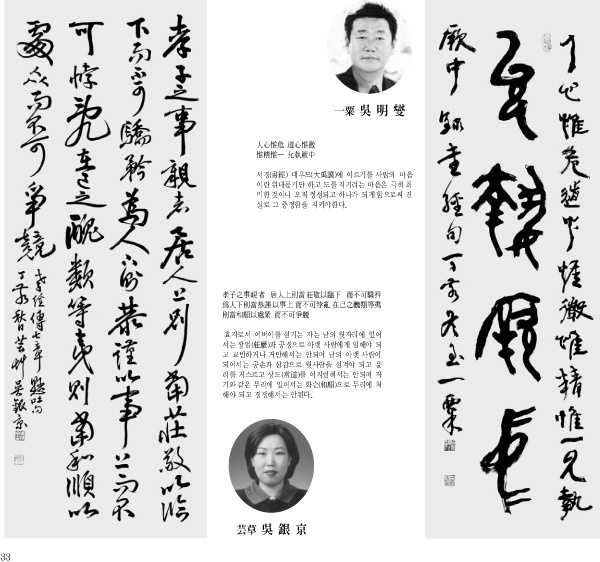 人心惟危道心惟微惟精惟一允執
允執厥中
厥中 錄書經句 丁亥冬至 一粟
一粟 吳明燮
人心惟危 道心惟微
惟精惟一 允執厥中
서경(書經) 대우모(大禹謨)에 이르기를 사람의 마음
이란 위태롭기만 하고 도를 지키려는 마음은 극히 희
미한 것이니 오직 정성되고 하나가 되게 함으로써 진
실로 그 중정함을 지켜야한다.
孝子之事親者 居人上則當 莊敬以臨下 而不可驕矜
爲人下則當恭謹以事上 而不可悖亂 在己之醜類等夷
則當和順以處衆 而不可爭競
효자로서 어버이를 섬기는 자는 남의 윗자리에 있어
서는 장엄(莊嚴)과 공경으로 아랫 사람에게 임해야 되
고 교만하거나 거만해서는 안되며 남의 아랫 사람이
되어서는 공손과 삼감으로 윗사람을 섬겨야 되고 윤
리를 거스르고 상도(常道)를 어지럽혀서는 안되며 자
기와 같은 무리에 있어서는 화순(和順)으로 무리에 처
해야 되고 경쟁해서는 안된다.
芸草 吳銀京
孝子之事親者居人上則當莊敬以臨
下而不可驕矜爲人下則當恭謹以事上而不
可悖亂在己之醜類等夷則當和順以
處衆而不可爭競
孝經傳七章
丁亥秋 芸艸 吳銀京
33